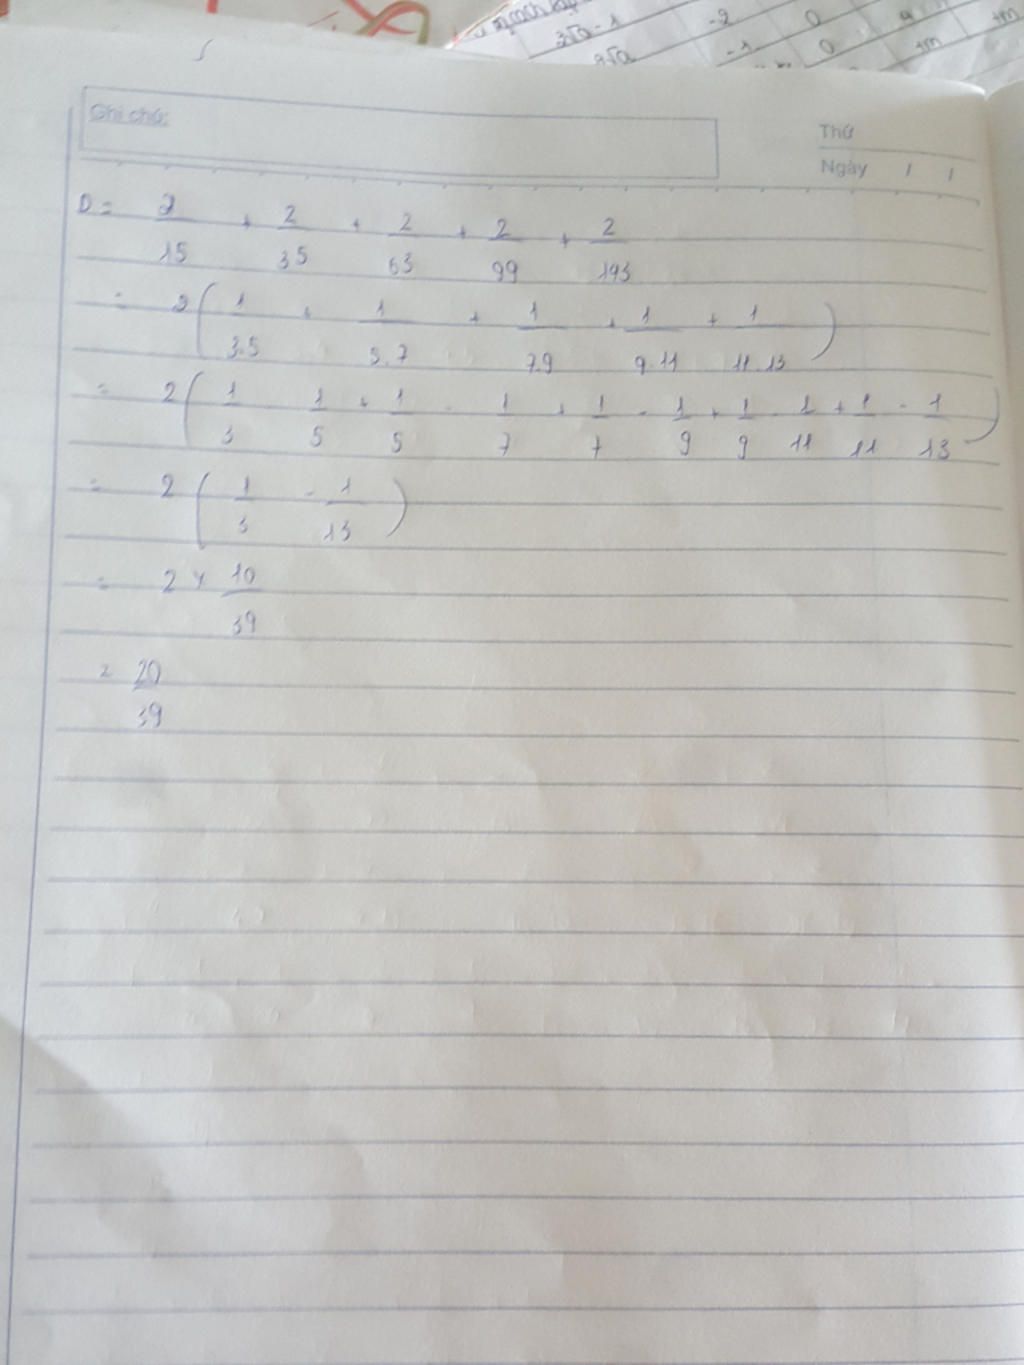 3√a - 1 -2 0 a +m
a√a -1 0 +m
Ghi chú:
Thứ
Ngày / /
D = 2/15 + 2/35 + 2/63 + 2/99 + 2/143
= 2 ( 1/3.5 + 1/5.7 + 1/7.9 + 1/9.11 + 1/11.13 )
= 2 ( 1/3 - 1/5 + 1/5 - 1/7 + 1/7 - 1/9 + 1/9 - 1/11 + 1/11 - 1/13 )
= 2 ( 1/3 - 1/13 )
= 2 × 10/39
= 20/39